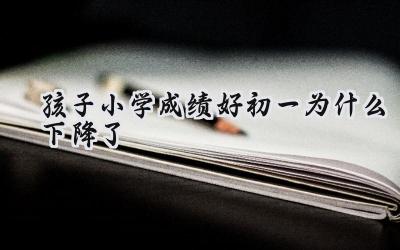 孩子小学成绩好初一为什么
下降了